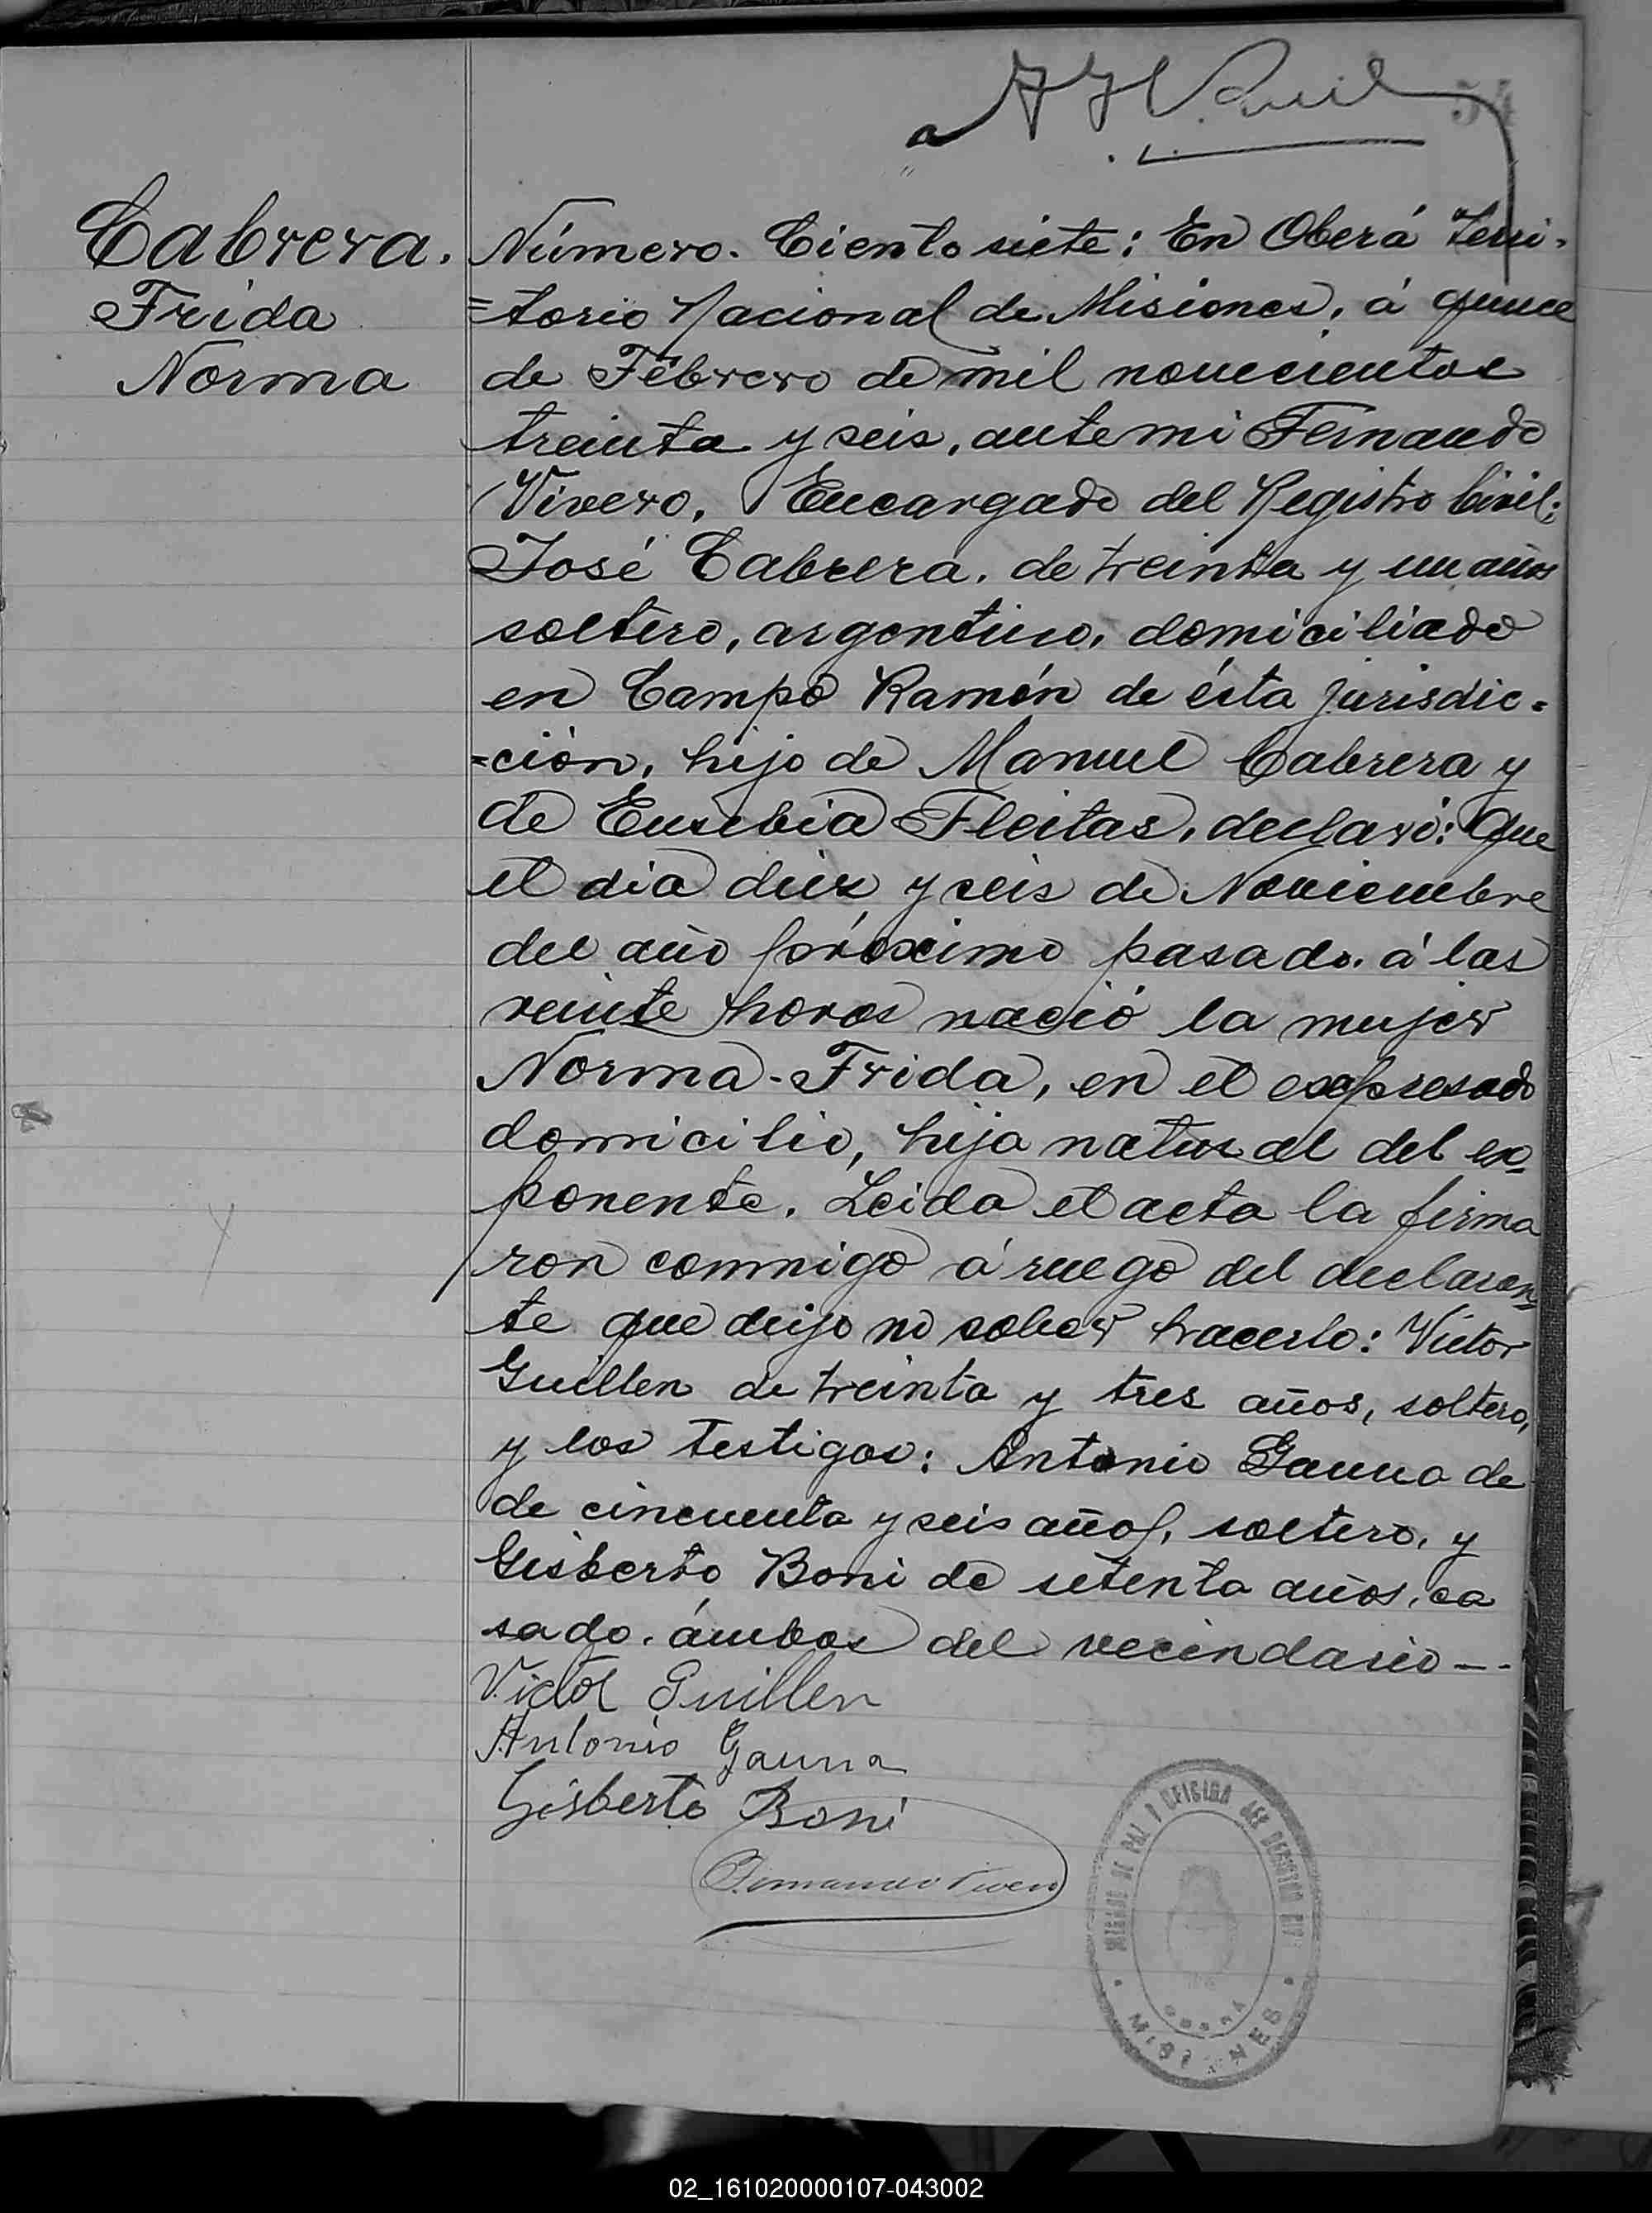 54
Cabrera.
Frida
Norma
Número. Ciento siete: En Oberá Terri-
=torio Nacional de Misiones, á quince
de Febrero de mil novecientos
treinta y seis, ante mi Fernando
Vivero, Encargado del Registro Civil:
José Cabrera, de treinta y un años
soltero, argentino, domiciliado
en Campo Ramón de ésta jurisdic=
=ción, hijo de Manuel Cabrera y
de Eusebia Fleitas, declaró: Que
el dia diez y seis de Noviembre
del año próximo pasado, á las
veinte horas nació la mujer
Norma-Frida, en el expresado
domicilio, hija natural del ex=
ponente. Leida el acta la firma
ron conmigo á ruego del declaran=
te que dijo no saber hacerlo: Victor
Guillen de treinta y tres años, soltero,
y los testigos: Antonio Gauna de
de cincuenta y seis años, soltero, y
Gisberto Boni de setenta años, ca
sado, ámbos del vecindario —-
Victor Guillen
Antonio Gauna
Gisberto Boni
Fernando Vivero
JUZGADO DE PAZ Y OFICINA DEL REGISTRO CIVIL
OBERA
MISIONES
02_161020000107-043002